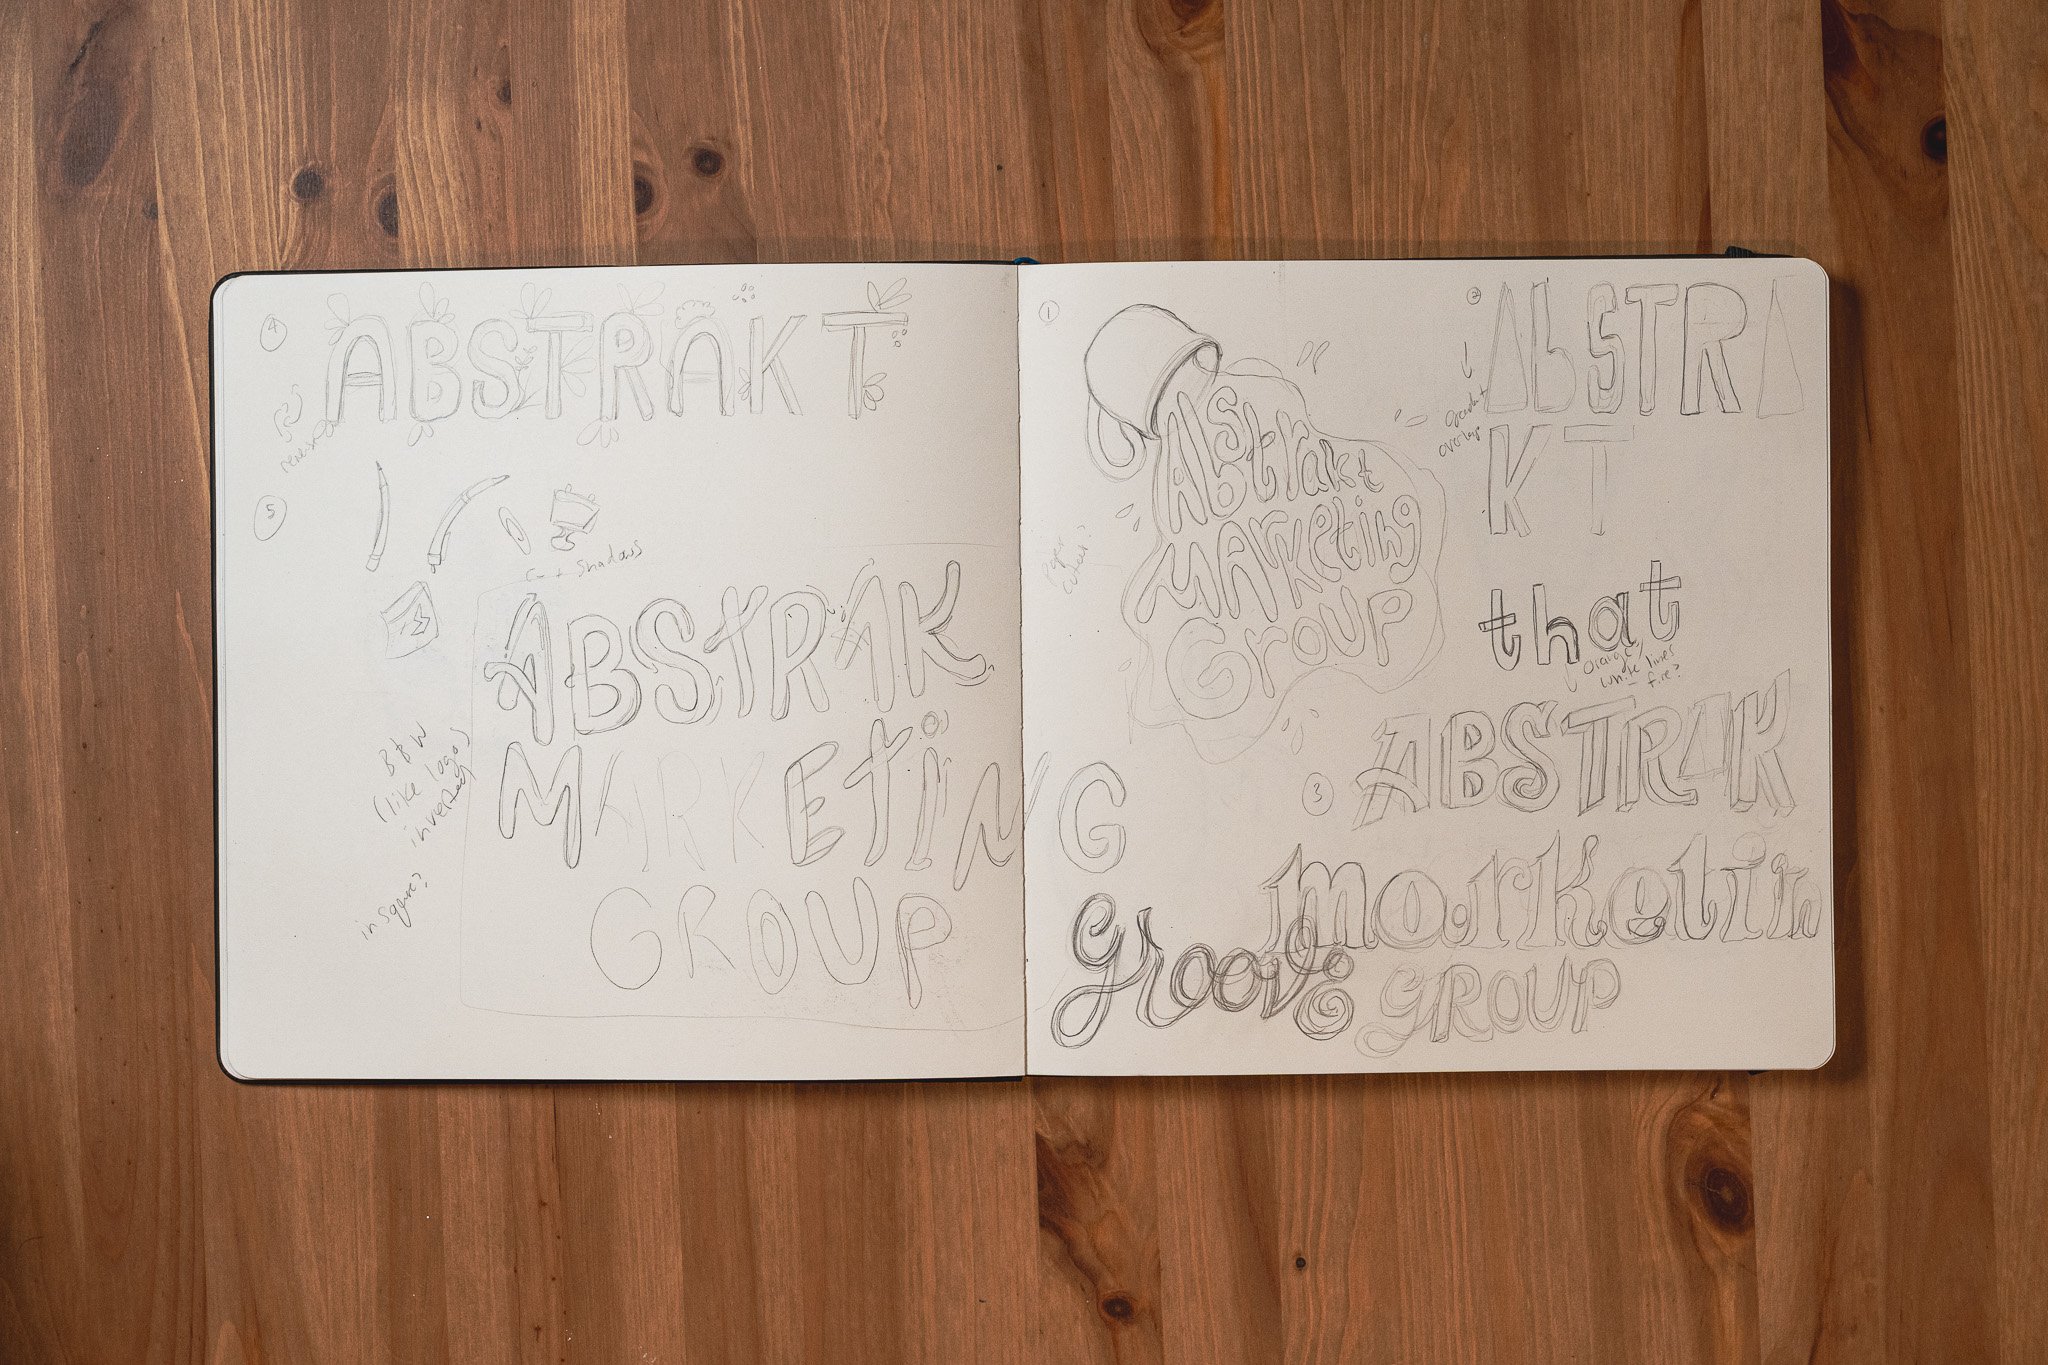 4
ABSTRAKT
5
+ Shadows
ABSTRAK
MARKETING
GROUP
B & W
(like logos
inversed)
in square?
1
Abstrakt
MARKeting
GrouP
Paper
2
AbSTRA
KT
overlap
that
orange/
white lines
fire?
3
ABSTRAK
marketin
groove
GROUP